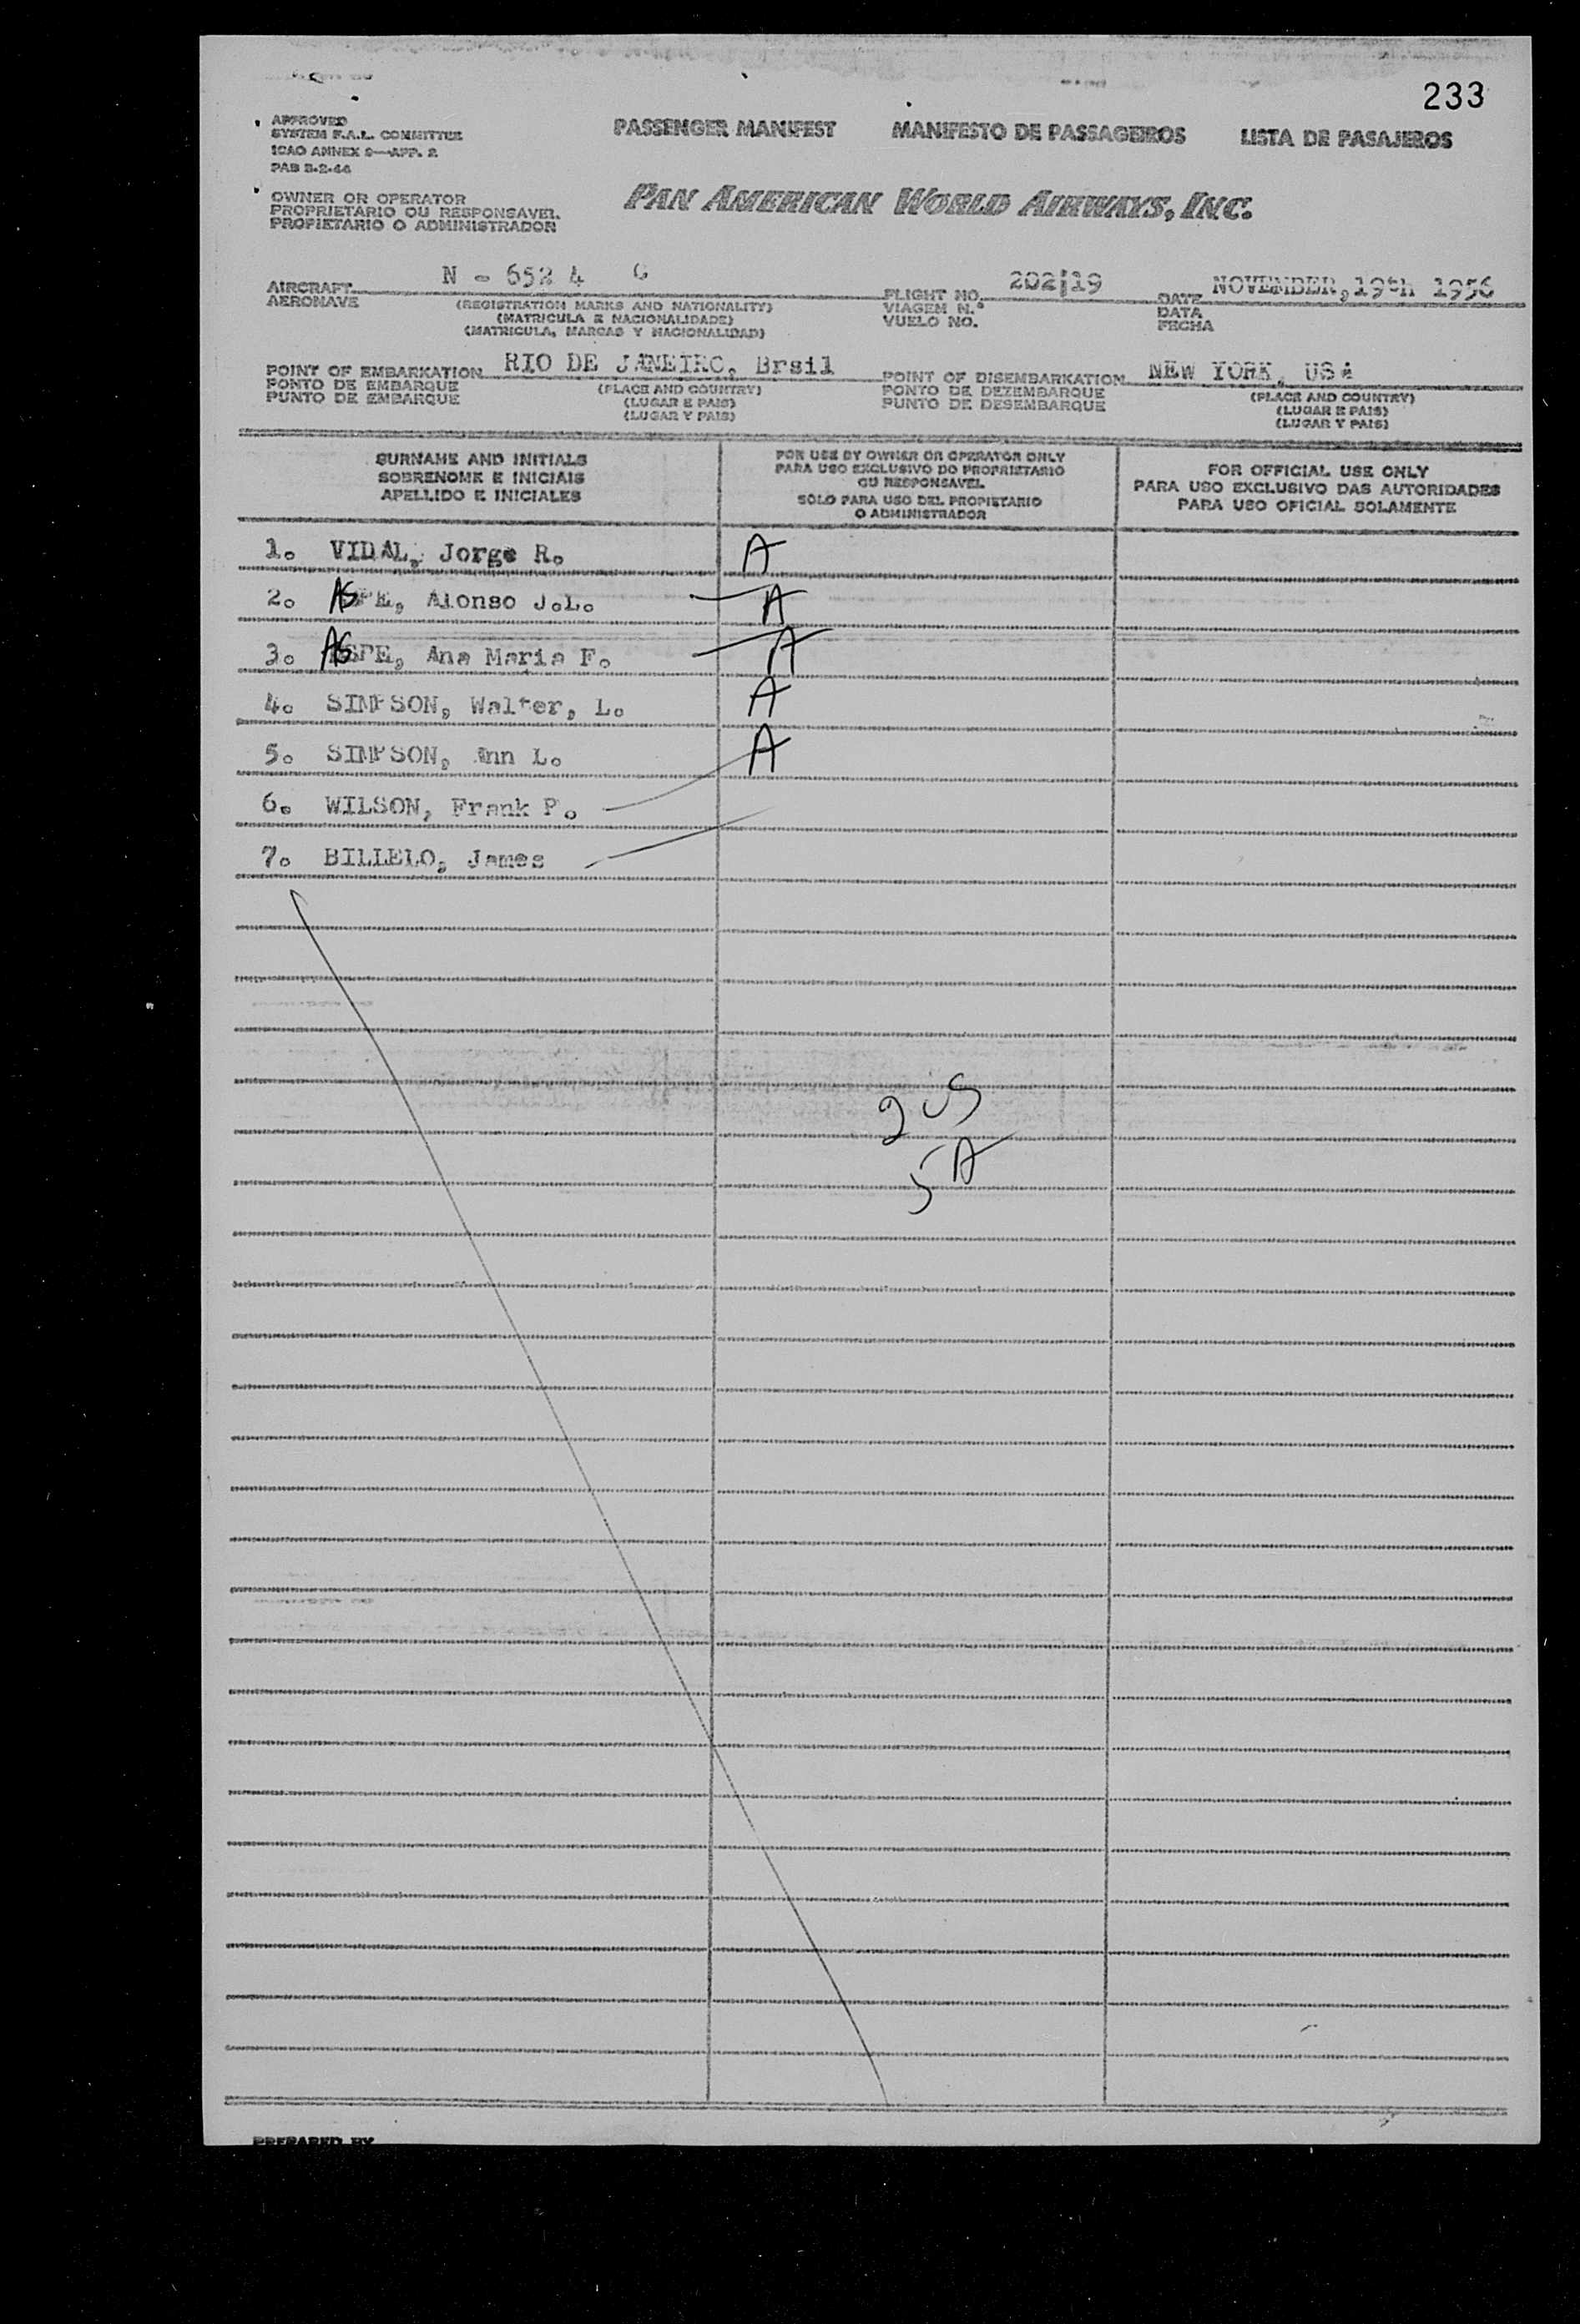 233
APPROVED
SYSTEM F.A.L. COMMITTEE
ICAO ANNEX 9—APP. 2
PAB 8-2-44
PASSENGER MANIFEST MANIFESTO DE PASSAGEIROS LISTA DE PASAJEROS
OWNER OR OPERATOR
PROPRIETARIO OU RESPONSAVEL
PROPIETARIO O ADMINISTRADOR
PAN AMERICAN WORLD AIRWAYS, INC.
AIRCRAFT N - 652 4 G FLIGHT NO. 202/19 DATE NOVEMBER, 19th 1956
AERONAVE (REGISTRATION MARKS AND NATIONALITY) VIAGEM N.º DATA
(MATRICULA E NACIONALIDADE) VUELO NO. FECHA
(MATRICULA, MARCAS Y NACIONALIDAD)
POINT OF EMBARKATION RIO DE JANEIRO, Brsil POINT OF DISEMBARKATION NEW YORK, USA
PONTO DE EMBARQUE (PLACE AND COUNTRY) PONTO DE DEZEMBARQUE (PLACE AND COUNTRY)
PUNTO DE EMBARQUE (LUGAR E PAIS) PUNTO DE DESEMBARQUE (LUGAR E PAIS)
(LUGAR Y PAIS) (LUGAR Y PAIS)
SURNAME AND INITIALS
SOBRENOME E INICIAIS
APELLIDO E INICIALES
FOR USE BY OWNER OR OPERATOR ONLY
PARA USO EXCLUSIVO DO PROPRIETARIO
OU RESPONSAVEL
SOLO PARA USO DEL PROPIETARIO
O ADMINISTRADOR
FOR OFFICIAL USE ONLY
PARA USO EXCLUSIVO DAS AUTORIDADES
PARA USO OFICIAL SOLAMENTE
1. VIDAL, Jorge R. A
2. ASPE, Alonso J.L. A
3. ASPE, Ana Maria F. A
4. SIMPSON, Walter, L. A
5. SIMPSON, Ann L. A
6. WILSON, Frank P.
7. BILLELO, James
2 US
5 A
PREPARED BY